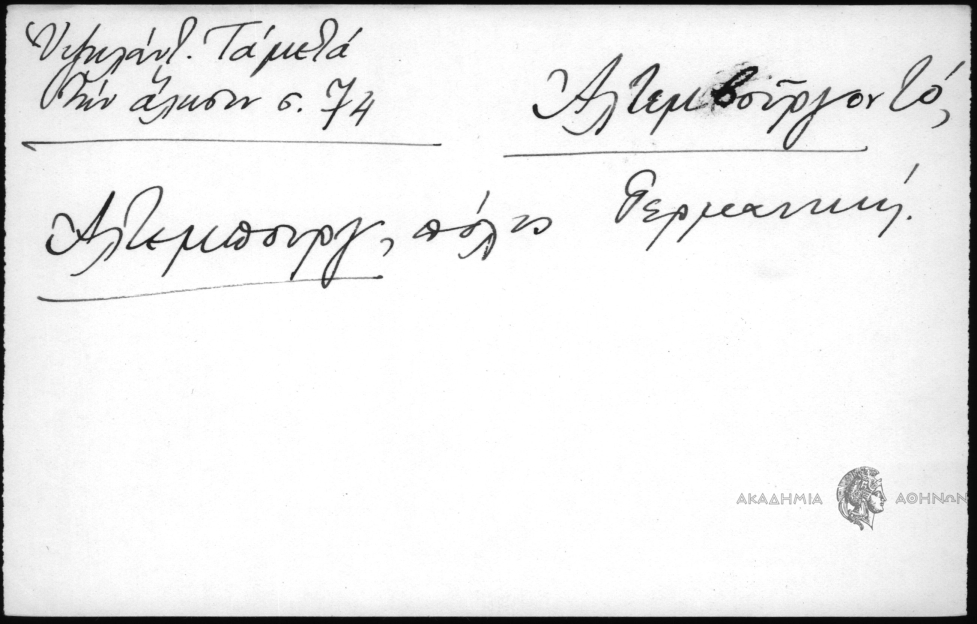 Ὑψηλάντ. Τά μετά
τήν ἅλωσιν σ. 74
Ἀλτεμβοῦργον τό,
Ἀλτεμπουργ, πόλις Γερμανική.
ΑΚΑΔΗΜΙΑ ΑΘΗΝΩΝ